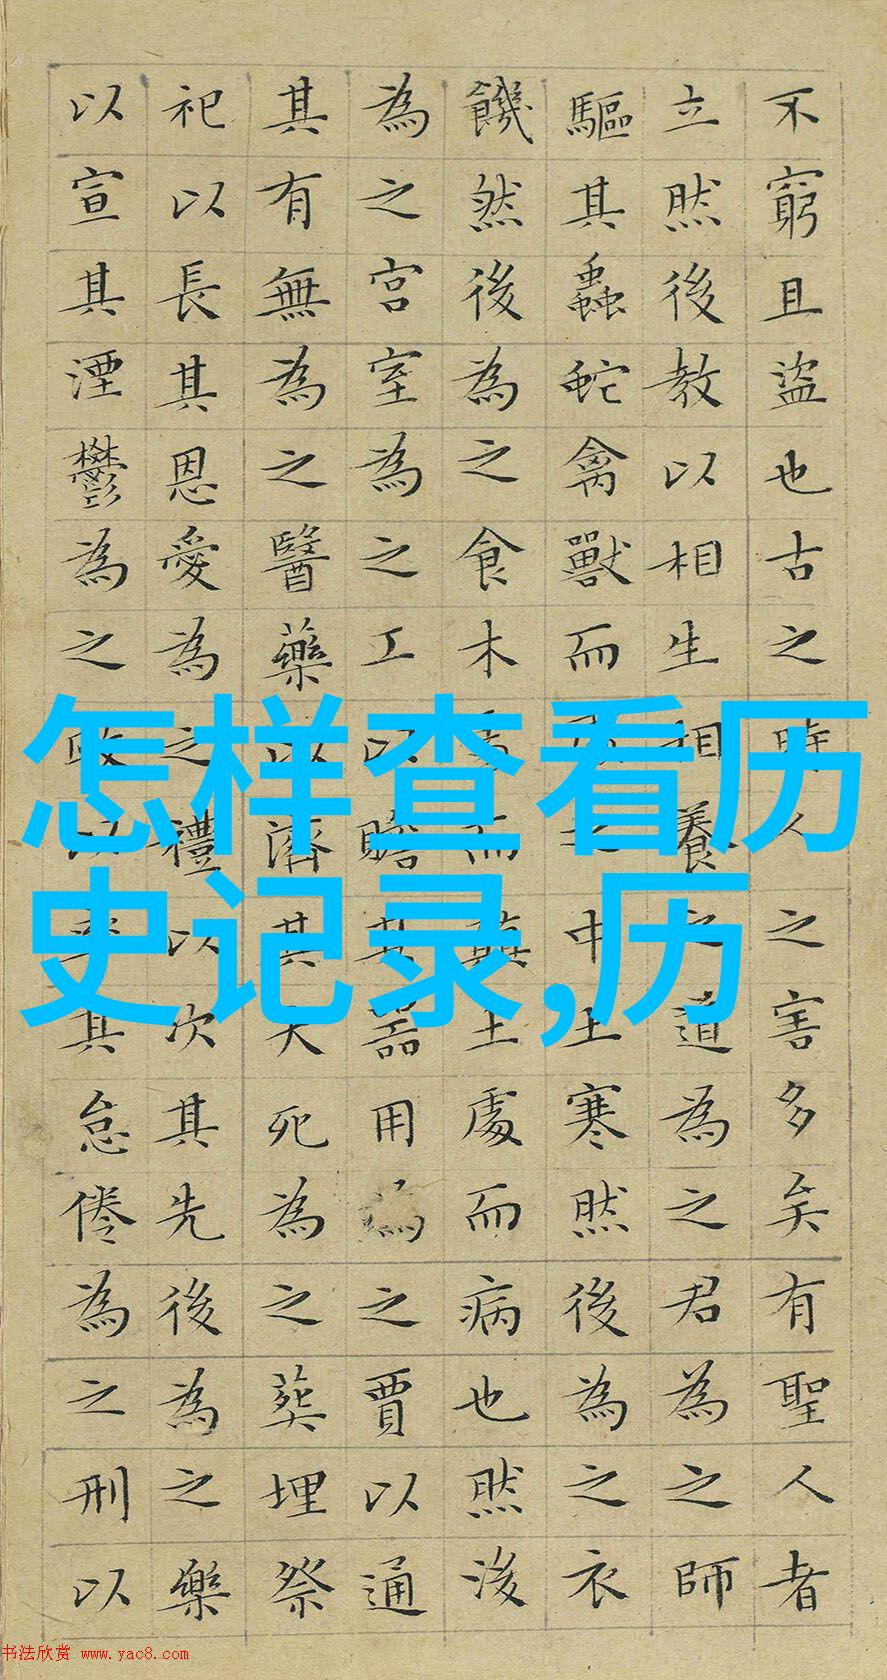 不窮且盜也古之時人之害多矣有聖人者
立然後教以相生相養之道為之君為之師
驅其蟲蛇禽獸而之中土寒然後為之衣
饑然後為之食木而顛土處而病也然後
為之宮室為之工以贍其器用為之賈以通
其有無為之醫藥以濟其夭死為之葬埋祭
祀以長其恩愛為之禮以次其先後為之樂
以宣其湮鬱為之政以其怠倦為之刑以
怎样查看历
史记录,历
书法欣赏 www.yac8.com